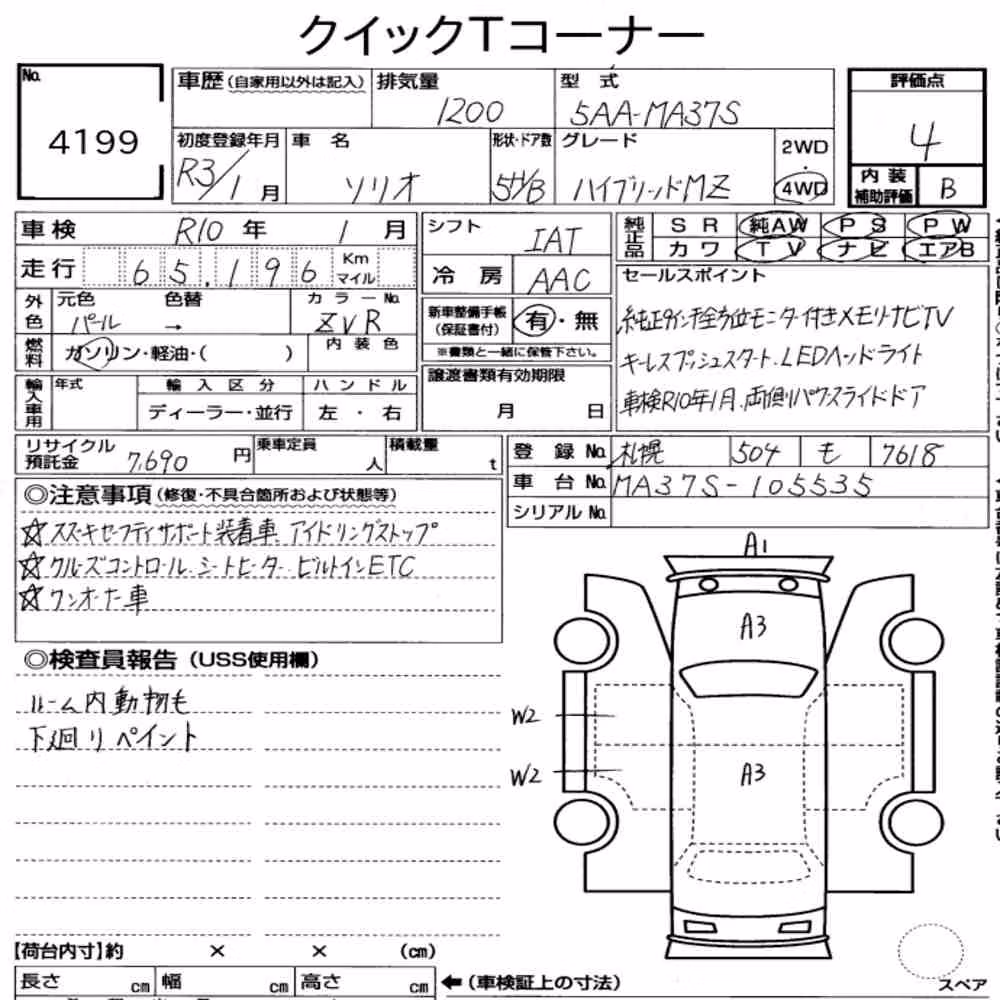 クイックTコーナー
No.
4199
車歴(自家用以外は記入) 排気量 1200 型式 5AA-MA37S
初度登録年月 R3/1月 車名 ソリオ 形状・ドア数 5H/B グレード ハイブリッドMZ 2WD・4WD
評価点 4
内装補助評価 B
車検 R10年 1月
走行 65,196 Km マイル
外色 元色 パール 色替 → カラーNo. ZVR
燃料 ガソリン・軽油・( ) 内装色
輸入車用 年式 輸入区分 ディーラー・並行 ハンドル 左・右
シフト IAT
冷房 AAC
新車整備手帳(保証書付) 有・無
※書類と一緒に保管下さい。
譲渡書類有効期限
月 日
純正品 SR 純AW PS PW
カワ TV ナビ エアB
セールスポイント
純正9インチ全方位モニター付きメモリナビTV
キーレスプッシュスタート.LEDヘッドライト
車検R10年1月.両側パワースライドドア
リサイクル預託金 7,690円 乗車定員 人 積載量 t
登録No. 札幌 504 も 7618
車台No. MA37S-105535
シリアルNo.
◎注意事項(修復・不具合箇所および状態等)
☆スズキセーフティサポート装着車.アイドリングストップ
☆クルーズコントロール.シートヒーター.ビルトインETC
☆ワンオーナー車
◎検査員報告(USS使用欄)
ルーム内動物毛
下廻りペイント
A1
A3
W2
W2
A3
【荷台内寸】約 × × (cm)
長さ cm 幅 cm 高さ cm ←(車検証上の寸法)
スペア